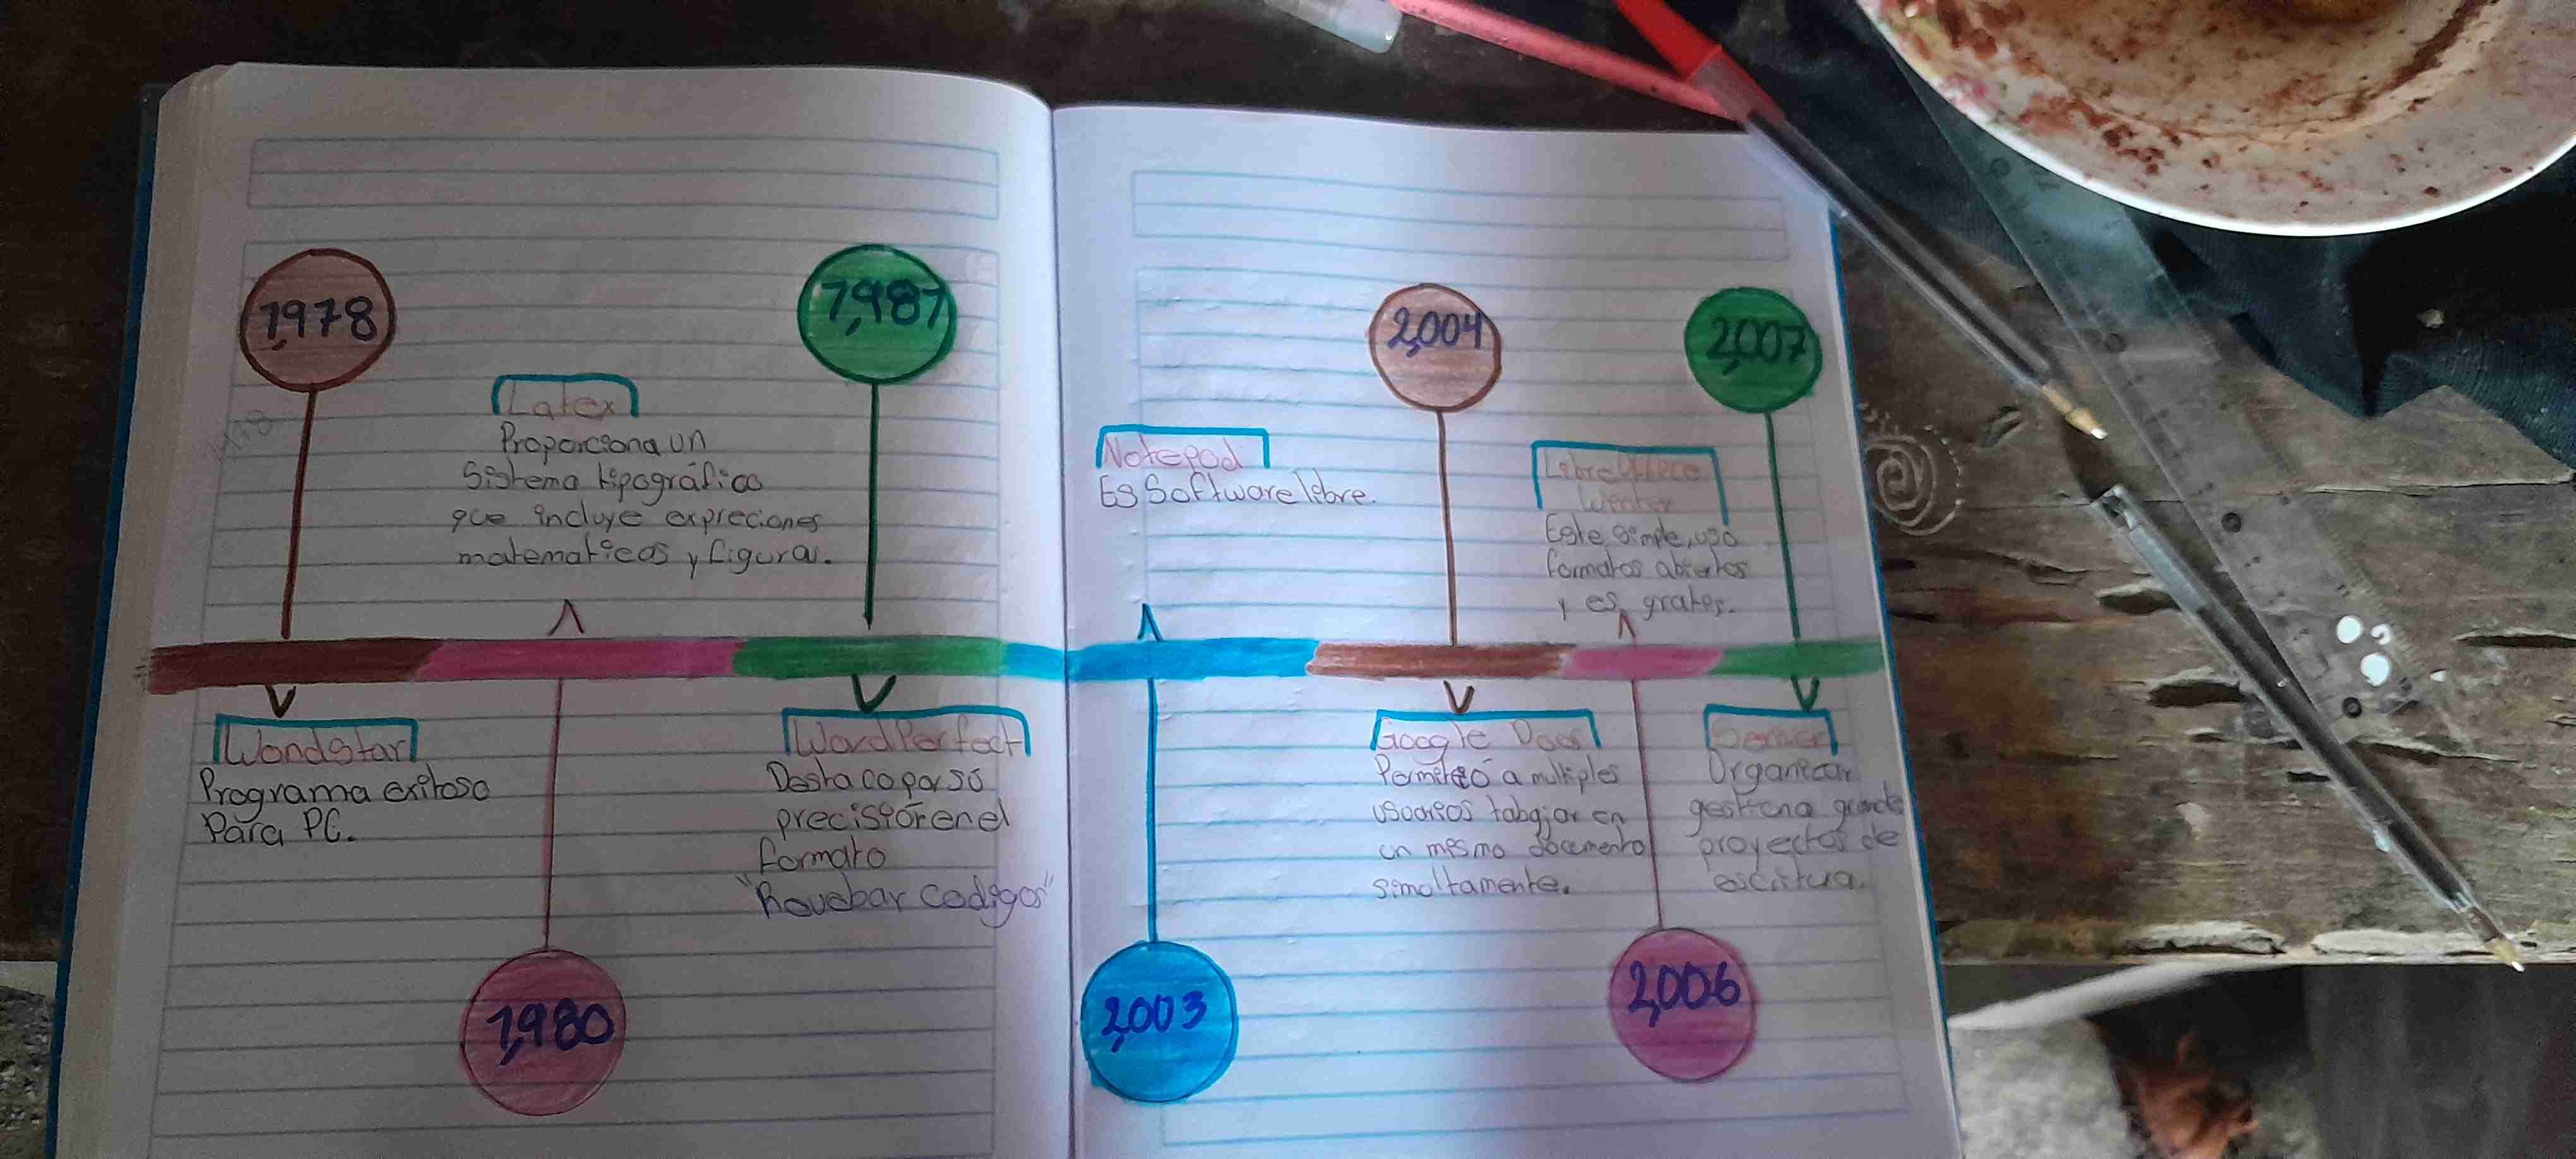 1,978
Wordstar
Programa exitoso
Para PC.
Latex
Proporciona un
Sistema tipográfico
que incluye expreciones
matematicas y figura.
1,980
1,987
WordPerfect
Destaco por só
precisión en el
formato
"Rouebar codigos"
Notepad
Es Software libre.
2,003
2,004
Google Docs
Permiteó a multiples
usuarios tabajar en
un mesmo documento
simultamente.
LibreOffece
Writer
Este simple, uso
formatos abiertos
y es grates.
2,006
2,007
Organizar
gestiona grande
proyectos de
escritura.